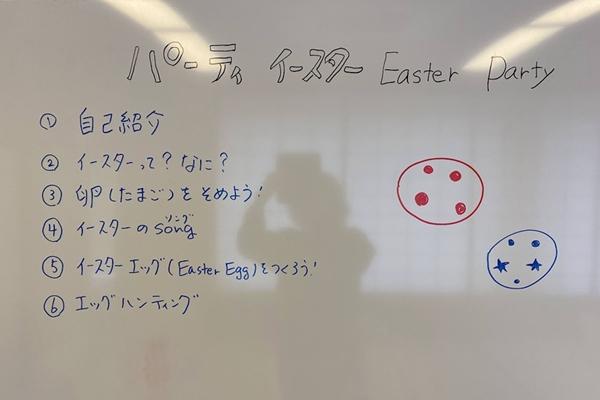 パーティ イースター Easter Party
① 自己紹介
② イースターって？なに？
③ 卵(たまご)をそめよう！
④ イースターのsong ソング
⑤ イースターエッグ(Easter Egg)をつくろう！
⑥ エッグハンティング